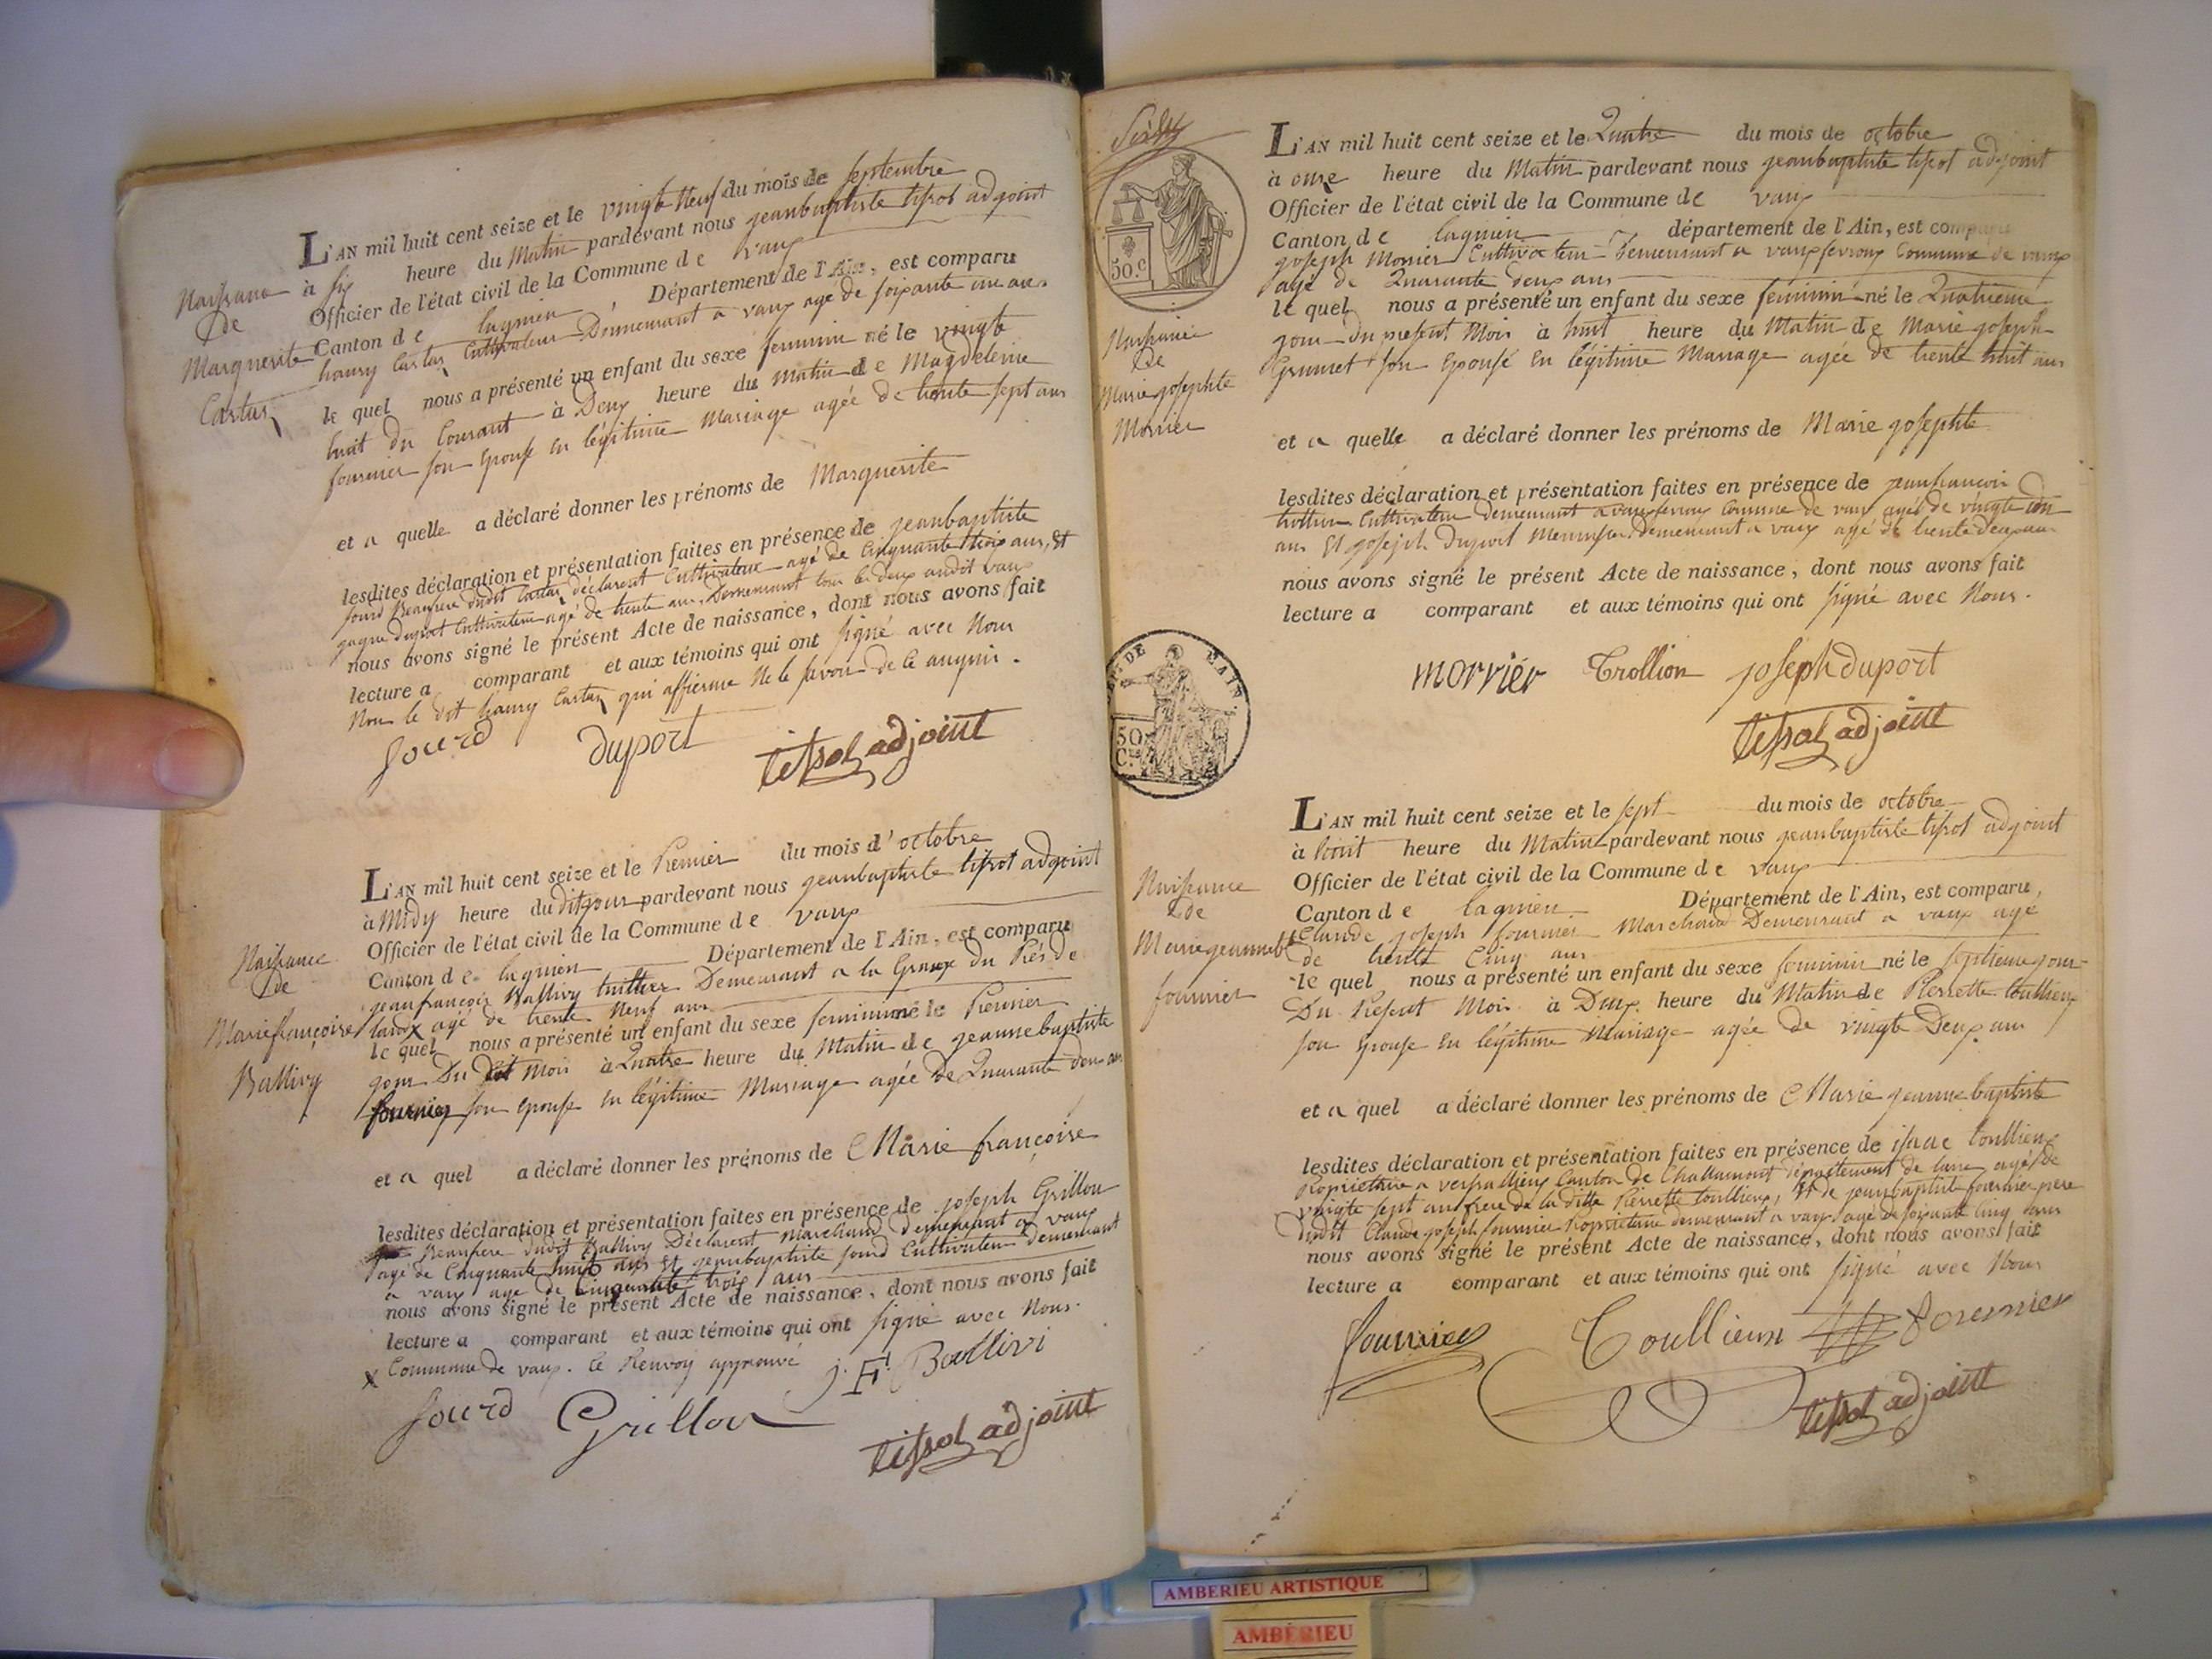 Naissance
de
Marguerite
Cartaz
L'AN mil huit cent seize et le vingt Neuf du mois de septembre
à six heure du Matin pardevant nous jeanbaptiste tissot adjoint
Officier de l'état civil de la Commune de vaux
Canton de lagnieu Département de l'Ain, est comparu
Cartaz Cultivateur Demeurant a vaux agé de soixante un ans
le quel nous a présenté un enfant du sexe feminin né le vingt
huit du Courant à Deux heure du matin de Magdeleine
fournier son Epouse en légitime Mariage agée de trente sept ans
et a quelle a déclaré donner les prénoms de Marguerite
lesdites déclaration et présentation faites en présence de jeanbaptiste
sourd Beaufrere dudit Cartaz déclarent Cultivateur agé de Cinquante trois ans, Et
duport Cultivateur agé de trente ans, Demeurant tous les deux audit vaux
nous avons signé le présent Acte de naissance, dont nous avons fait
lecture a comparant et aux témoins qui ont signé avec Nous
Non le dit Cartaz qui affierme Ne le savoir de ce anquis.
Sourd duport tissot adjoint
Naissance
de
Marie françoise
Ballivy
L'AN mil huit cent seize et le Premier du mois d'octobre
à Midy heure du dit jour pardevant nous jeanbaptiste tissot adjoint
Officier de l'état civil de la Commune de vaux
Canton de lagnieu Département de l'Ain, est comparu
jeanfrançois Ballivy tuillier Demeurant a la Grange Du Prés de
x agé de trente Neuf ans
le quel nous a présenté un enfant du sexe feminin né le Premier
jour Du dit Mois à Quatre heure du Matin de jeannebaptiste
fournier son epouse en légitime Mariage agée de Quarante deux ans
et a quel a déclaré donner les prénoms de Marie françoise
lesdites déclaration et présentation faites en présence de joseph Grillon
Beaufrere dudit Ballivy Déclarent Marchand demeurant a vaux
agé de Cinquante huit ans Et jeanbaptiste sourd Cultivateur demeurant
a vaux age de Cinquante trois ans
nous avons signé le présent Acte de naissance, dont nous avons fait
lecture a comparant et aux témoins qui ont signé avec Nous.
x Commune de vaux. le Renvoy approuvé
j. F. Ballivi
Sourd Grillon
tissot adjoint
50.c
Naissance
de
Marie josephte
Morrier
L'AN mil huit cent seize et le Quatre du mois de octobre
à onze heure du Matin pardevant nous jeanbaptiste tissot adjoint
Officier de l'état civil de la Commune de vaux
Canton de lagnieu département de l'Ain, est comparu
joseph Morrier Cultivateur Demeurant a vauxfevroux Commune de vaux
agé de Quarante deux ans
le quel nous a présenté un enfant du sexe féminin né le Quatrieme
jour du present Mois à huit heure du Matin de Marie joseph
Grumet son Epouse en légitime Mariage agée de trente huit ans
et a quelle a déclaré donner les prénoms de Marie josephte
lesdites déclaration et présentation faites en présence de jeanfrancois
trollion Cultivateur demeurant a vauxfevroux Commune de vaux agé de vingt
ans Et joseph Duport Menuisier Demeurant a vaux agé de trente deux ans
nous avons signé le présent Acte de naissance, dont nous avons fait
lecture a comparant et aux témoins qui ont signé avec Nous.
morriér Trollion joseph duport
tissot adjoint
50
C.mes
Naissance
de
Marie jeannebte
fournier
L'AN mil huit cent seize et le sept du mois de octobre
à huit heure du Matin pardevant nous jeanbaptiste tissot adjoint
Officier de l'état civil de la Commune de vaux
Canton de lagnieu Département de l'Ain, est comparu,
Claude joseph fournier Marchand Demeurant a vaux agé
de trente Cinq ans
le quel nous a présenté un enfant du sexe feminin né le septieme jour
Du Present Mois à Deux heure du Matin de Pierrette toullieux
son epouse en légitime Mariage agée de vingt Deux ans
et a quel a déclaré donner les prénoms de Marie jeannebaptiste
lesdites déclaration et présentation faites en présence de isaac toullieux
Propriétaire a versailleux Canton de Challamont département de lain, agé de
vingt sept ans frere de la ditte Pierrette toullieux, Et de jeanbaptiste fournier pere
dudit Claude joseph fournier Propriétaire demeurant a vaux agé de soixante Cinq ans
nous avons signé le présent Acte de naissance, dont nous avons fait
lecture a comparant et aux témoins qui ont signé avec Nous
fournier Toullieux fournier
tissot adjoint
AMBERIEU ARTISTIQUE
AMBÉRIEU